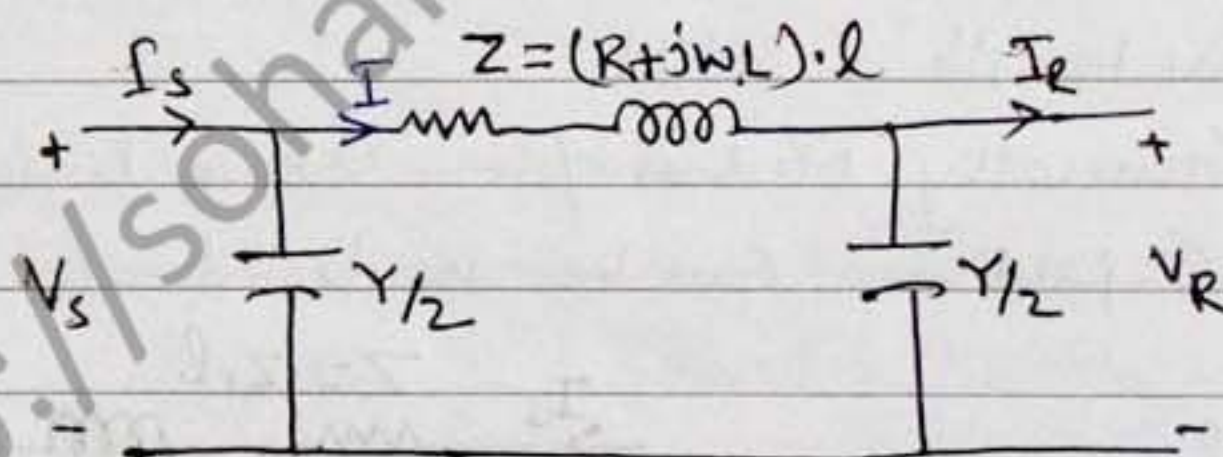 ://soha
I_S I Z = (R+jωL)·l I_R
+ +
V_S Y/2 Y/2 V_R
- -